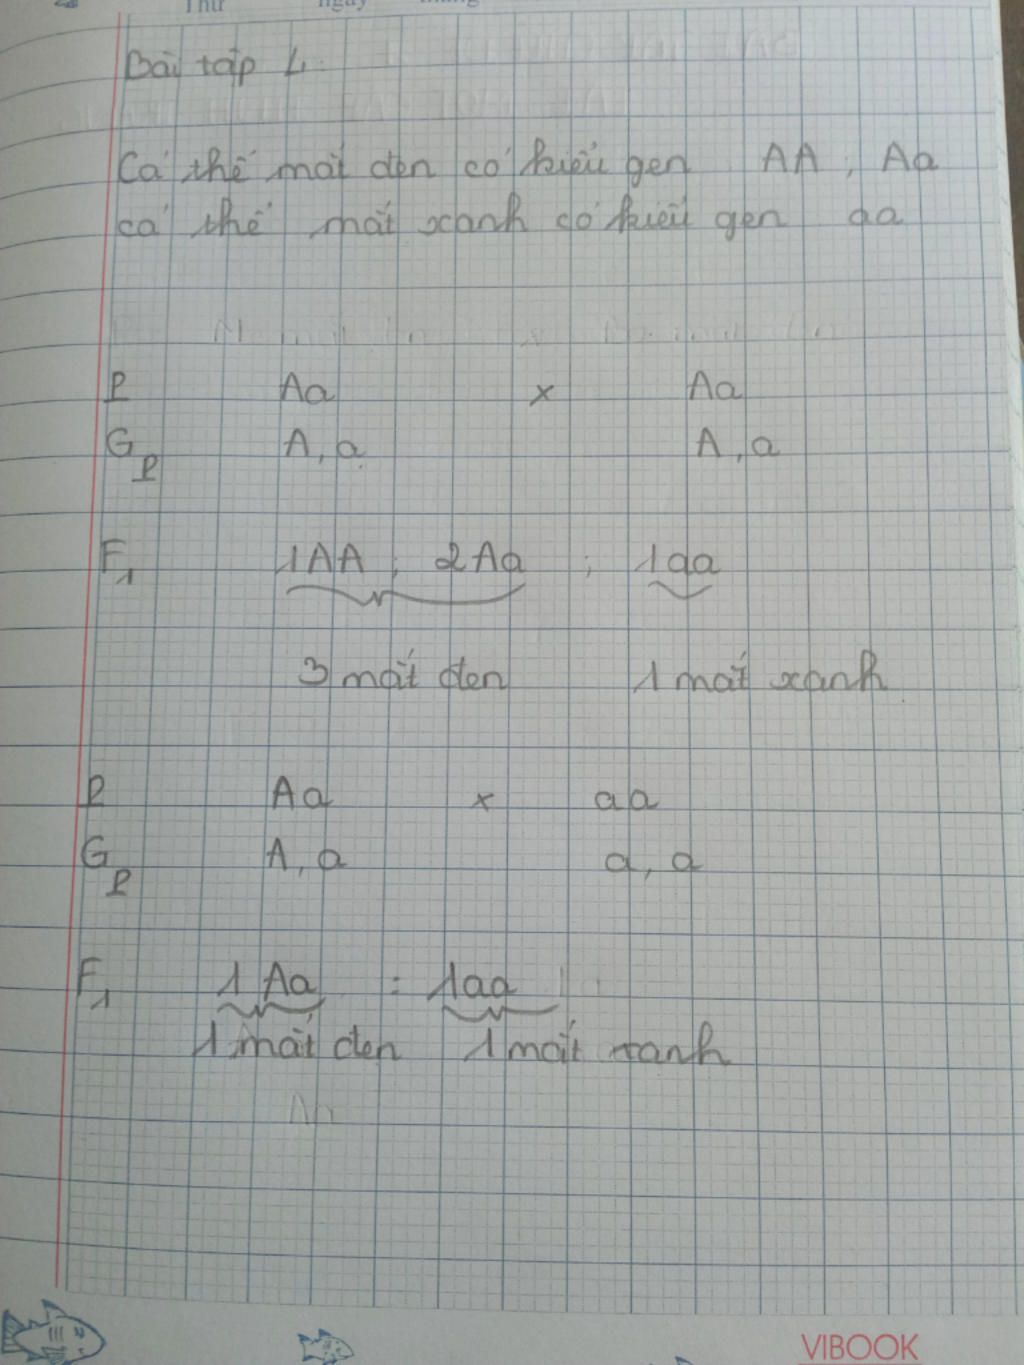 Thứ ngày tháng
Bài tập 4
Cá thể mắt đen có kiểu gen AA ; Aa
cá thể mắt xanh có kiểu gen aa
P Aa x Aa
G_P A, a A, a
F1 1AA ; 2Aa ; 1aa
3 mắt đen 1 mắt xanh
P Aa x aa
G_P A, a a, a
F1 1 Aa : 1aa
1 mắt đen 1 mắt xanh
VIBOOK